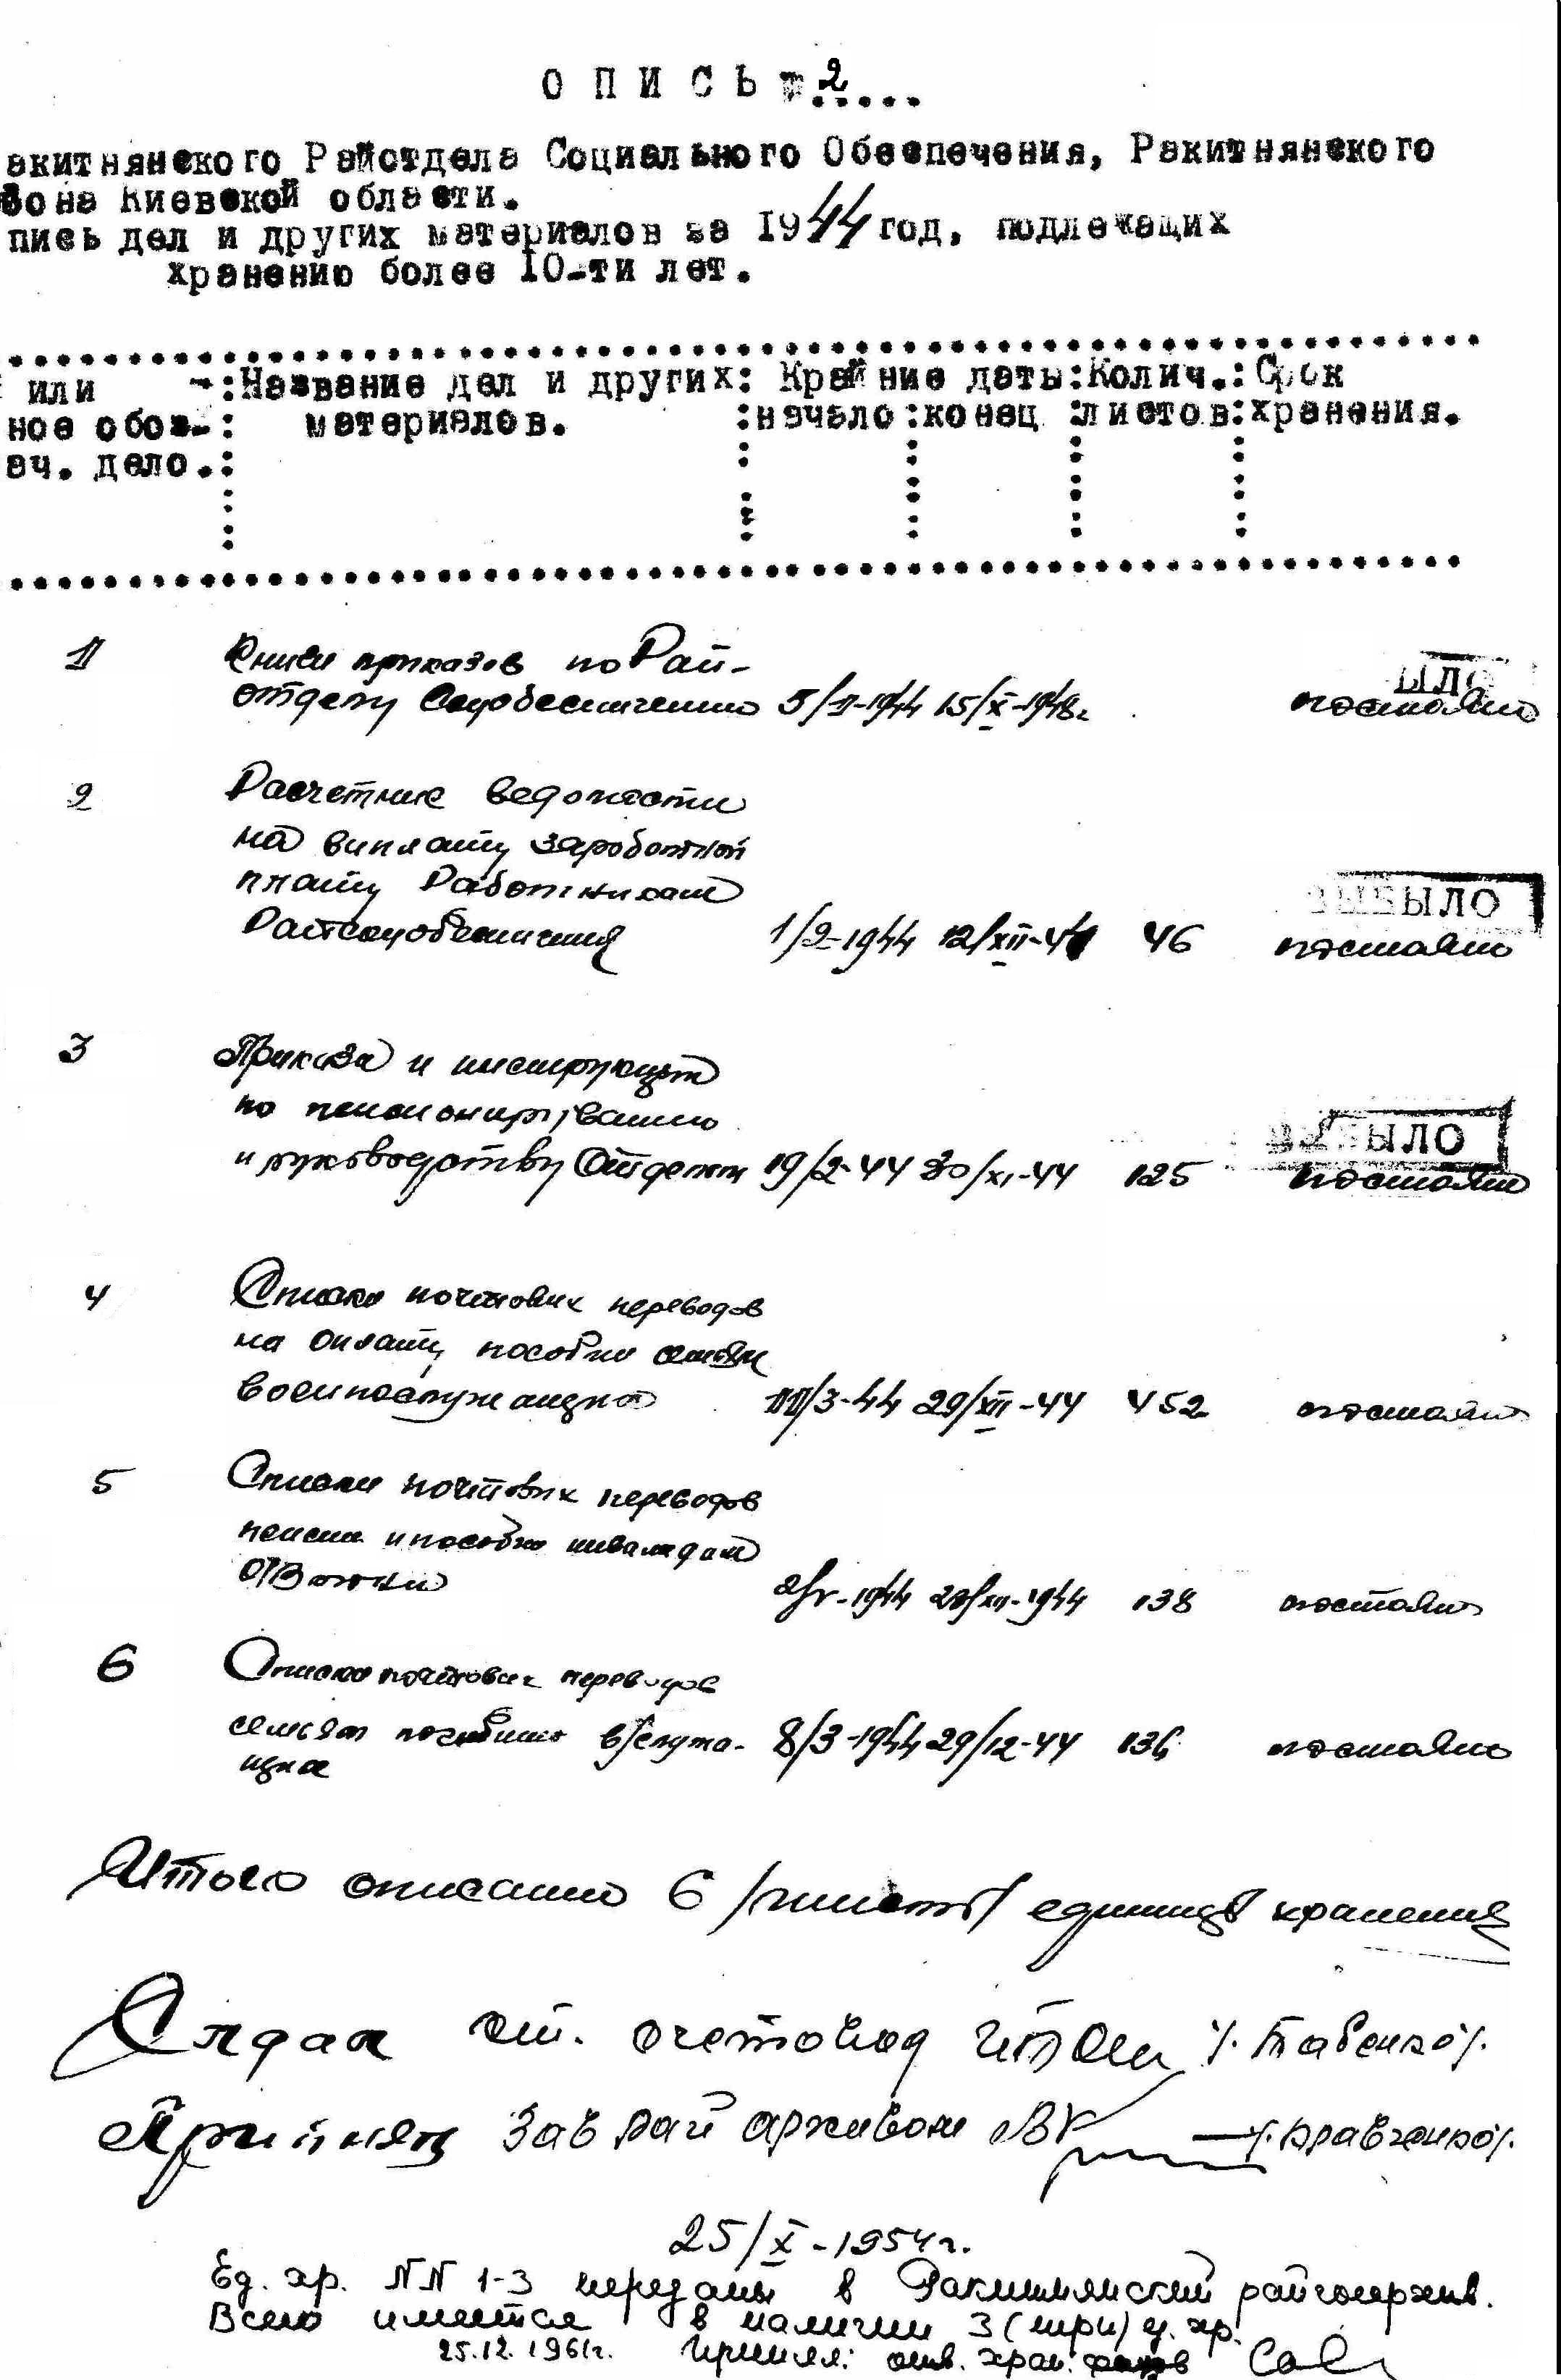 О П И С Ь № 2
акитнянского Райотдела Социального Обеспечения, Ракитнянского
йона Киевской области.
пись дел и других материалов за 1944 год, подлежащих
хранению более 10-ти лет.
или :Название дел и других: Крайние даты:Колич.:Срок
ное обоз-: материалов. :начало:конец :листов:хранения.
ач. дело.:
1 Книги приказов по Рай-
отделу Соцобеспечению 5/II-1944 15/X-1948г постояно
ЫЛО
2 Расчетние ведомости
на виплату заработной
плату Работникам
ВЫБЫЛО
Райсоцобеспечения 1/2-1944 12/XII-44 46 постояно
3 Приказа и инструкции
по пенсионированию
ВЫБЫЛО
и руководству Отделом 19/2-44 30/XI-44 125 постояно
4 Списки почтових переводов
на оплату пособие семям
военнослужащих 11/3-44 29/XII-44 452 постояно
5 Списки почтових переводов
пенсии и пособие инвалидам
ОВ войни 1944 XII-1944 138 постояно
6 Списки почтових переводов
семьям погибших в/служа- 8/3-1944 29/12-44 136 постояно
щих
Итого описанно 6 /шесть/ единиц хранения
Сядал ст. счетовод /. Бабенко/.
Прийняв Зав рай архивом /.Кравченко/.
25/X-1954г.
Ед. хр. NN 1-3 переданы в Ракитнянский райгосархив.
Всего имеется в наличии 3 (три) ед. хр.
25.12.1961г. Приняла: отв. хран. фондов